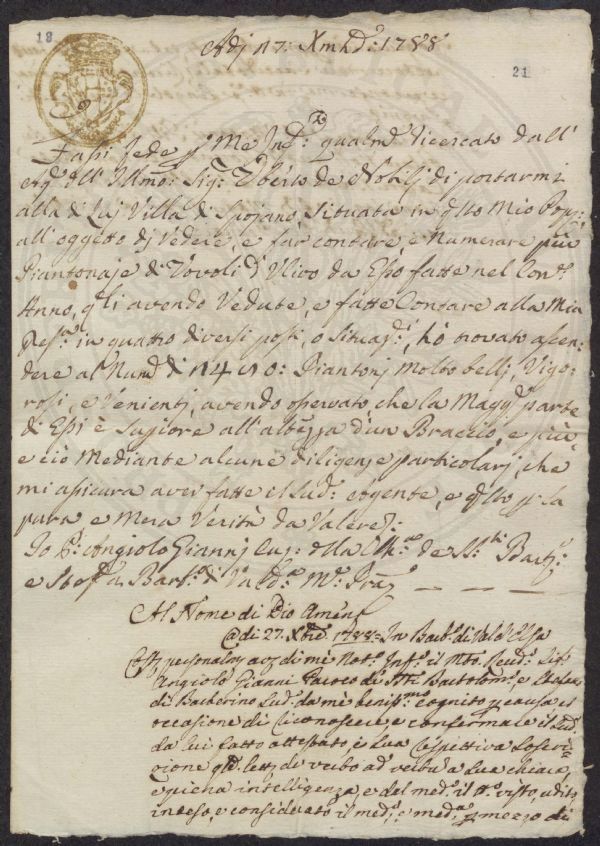 18
Adj 17: Xmbre: 1788
21
Fassi fede p Me Inf: qualmte ricercato dall'
Ag dll' Illmo: Sig: Uberto de Nobilj di portarmi
alla di Luj Villa di Spojano, Situata in qsto Mio Pop:
all'oggetto dj Vedere, e far contare e Numerare più
Piantonaje di Vovoli d'Ulivo da Esso fatte nel Con
Anno, qli avendo Vedute, e fatte Contare alla Mia
in quattro diversi posti, o Situaz, hò trovato ascen-
dere al Num di Piantonj Molto bellj, Vigo-
rosi, e Venientj, avendo osservato, che la Magg parte
di Essi è Supiore all'altezza d'un Braccio, e più,
e ciò Mediante alcune diligenze particolarj, che
mi assicura aver fatte il Sud: e qsto p la
pura e Mera Verità da Valere:
Io P: Angiolo Giannj Cur: dlla de Sti Bart:
e Stef a Barb: di Vald Mo Pra
Al Nome di Dio Amen
Adi 27. Xbre 1788: In Barb: di Vald'Elsa
personalm av di mè Not: Inf: il Mto: Reud: Sigr
Angiolo Gianni Paroco di Sti Bartolomeo, e Stefano
di Barberino Sud: da mè beniss cognito p causa et
occasione di riconoscere e confermare il Sud
da lui fatto attestato, e Sua respettiva Soscri-
zione letta de verbo ad verbu a Sua chiara,
e piena intelligenza, e del med il visto, udito
inteso, e considerato il med: e med p mezzo di